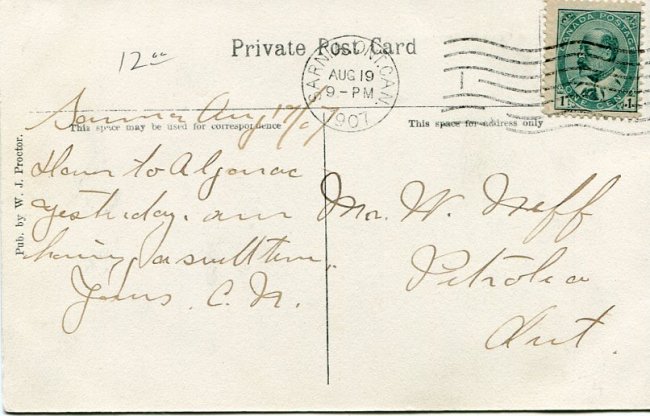 12⁰⁰
Private Post Card
SARNIA, ONT. CAN.
AUG 19
9-PM
1907
CANADA POSTAGE
1 1
ONE CENT
Sarnia Aug 19/07
This space may be used for correspondence
This space for address only
Pub. by W. J. Proctor.
to Algonac
yesterday. am
having a swell time.
Yours C. N.
Mr. W. Neff
Petrolea
Ont.